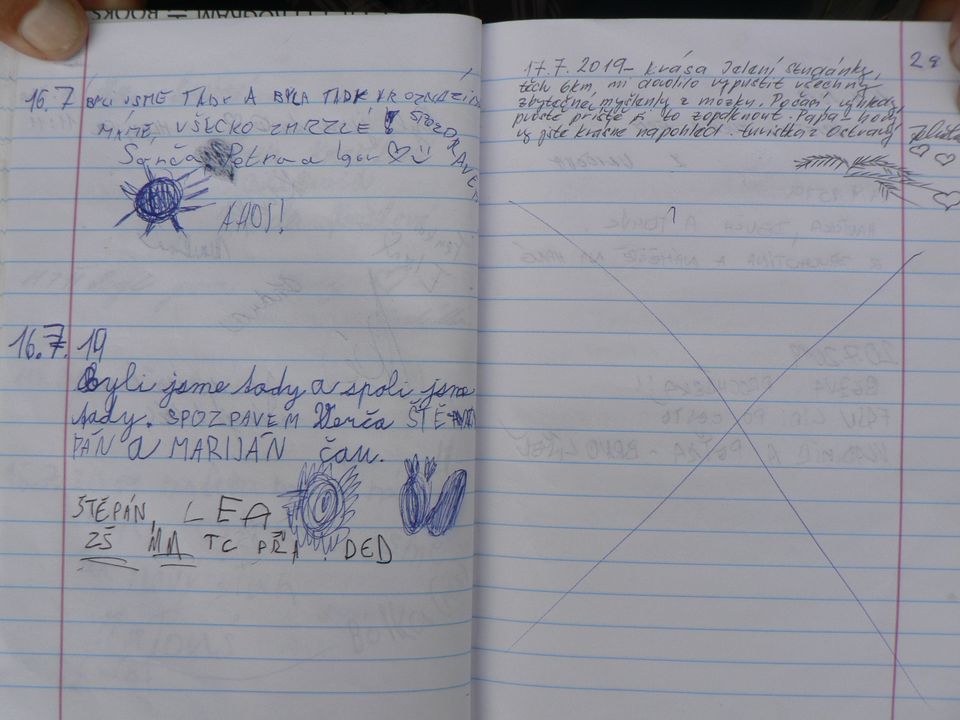 16.7 BYLI JSME TADY A BYLA TADY
MÁMĚ, VŠECKO ZMRZLÉ! S POZDRAVEM
Sánča Petra a Igor
AHOJ!
16.7. 19
Byli jsme tady a spali jsme
tady. SPOZPAVEM Verča ŠTĚ
PÁN a MARIJÁN čau.
ŠTĚPÁN, LEA
ZŠ MM TC DED
28
17.7. 2019 - krása Jelení studánky,
těch 6km, mi dovolilo vypustit všechny
zbytečné myšlenky z mozku. Počasí, výhledy,
prostě příště si to zopáknout. Papa- body
vy jste krásné na pohled. turistka z Ostravy